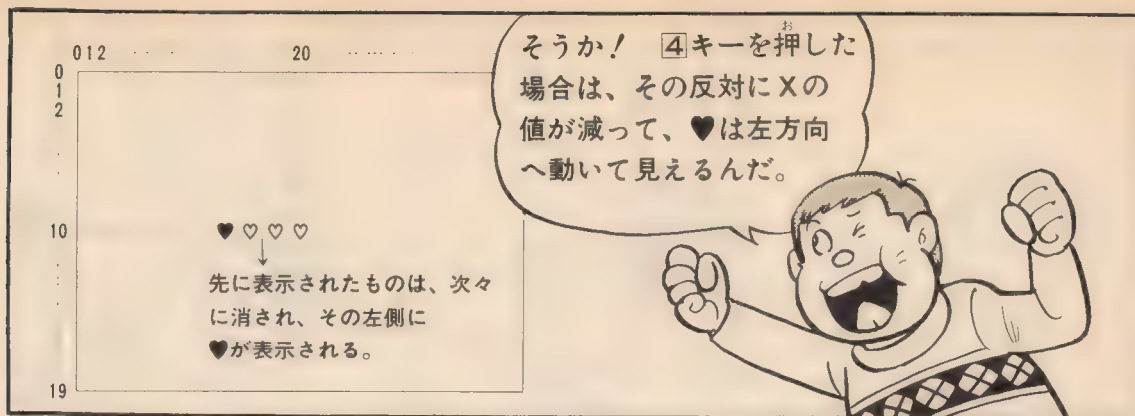 012 ····· 20 ·······
0
1
2
·
·
·
10
·
:
·
19
♥ ♡ ♡ ♡
↓
先に表示されたものは、次々
に消され、その左側に
♥が表示される。
そうか! 4キーを押した
お
場合は、その反対にXの
値が減って、♥は左方向
へ動いて見えるんだ。